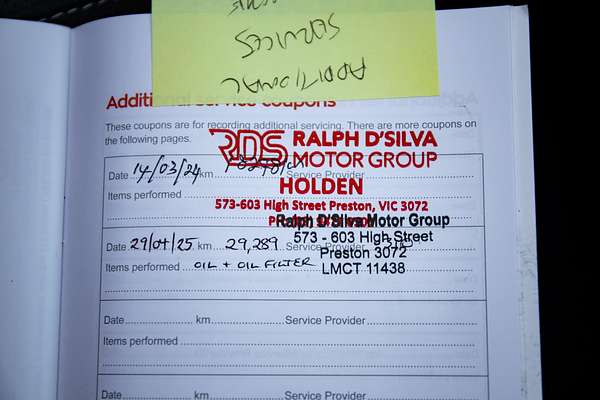 SERVICES
ADDITIONAL
Additional service coupons
These coupons are for recording additional servicing. There are more coupons on
the following pages.
RDS RALPH D'SILVA
MOTOR GROUP
HOLDEN
573-603 High Street Preston, VIC 3072
Date 14/03/24 km Service Provider
Items performed
Ralph D'Silva Motor Group
573 - 603 High Street
Preston 3072
LMCT 11438
Date 29/04/25 km 29,289 Service Provider
Items performed OIL + OIL FILTER
Date km Service Provider
Items performed
Date km Service Provider